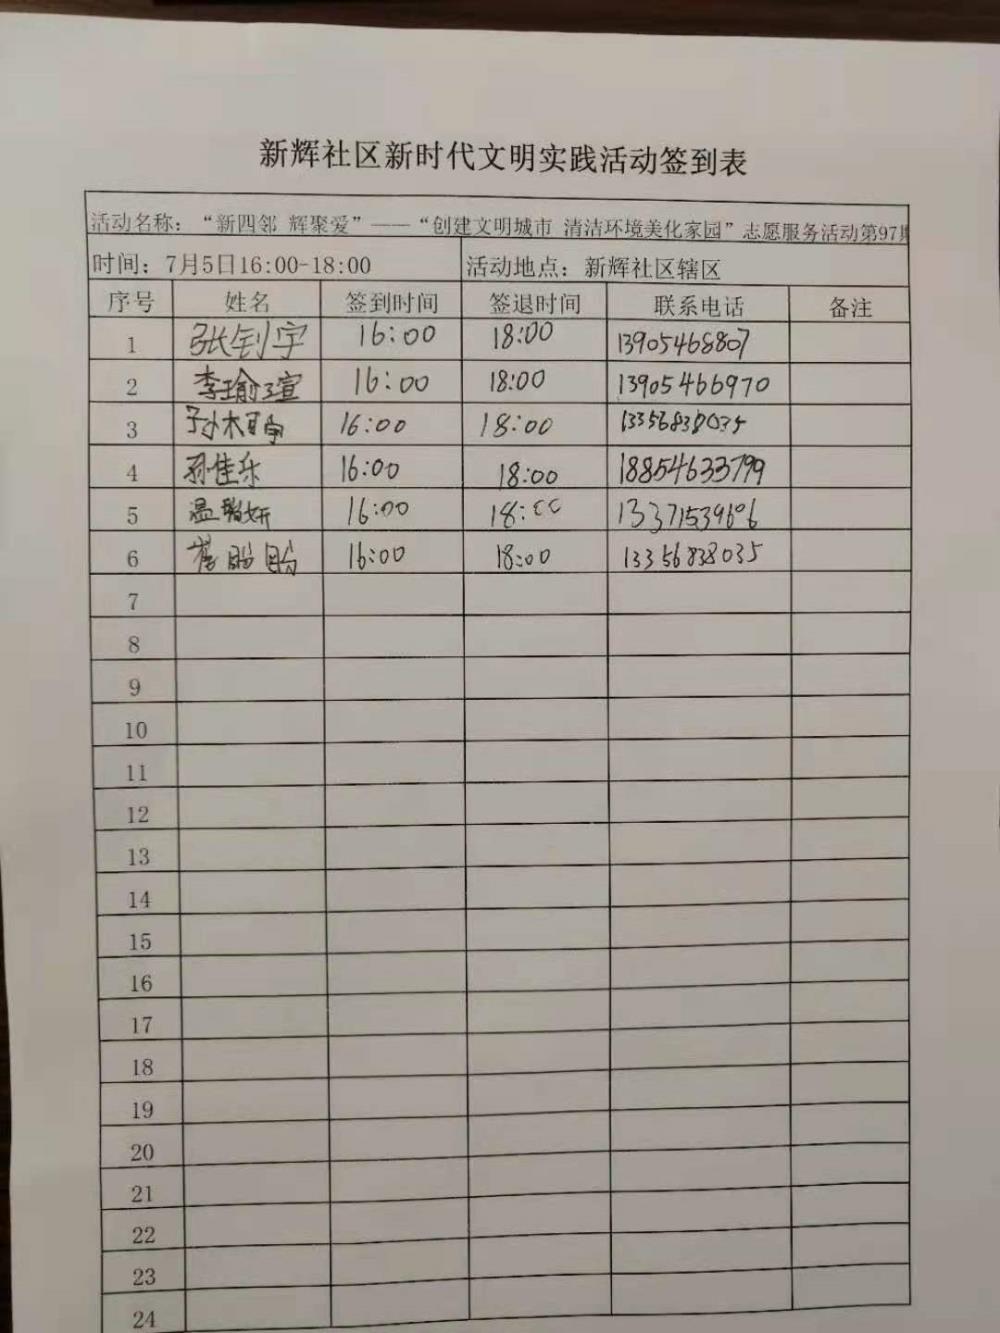 新辉社区新时代文明实践活动签到表
活动名称：“新四邻 辉聚爱”——“创建文明城市 清洁环境美化家园”志愿服务活动第97期
时间：7月5日16:00-18:00 活动地点：新辉社区辖区
序号 姓名 签到时间 签退时间 联系电话 备注
1 张钊宇 16:00 18:00 13905468807
2 李瑜瑄 16:00 18:00 13905466970
3 16:00 18:00 13356838035
4 孙佳乐 16:00 18:00 18854633799
5 16:00 18:00 13371539606
6 16:00 18:00 13356838035
7
8
9
10
11
12
13
14
15
16
17
18
19
20
21
22
23
24